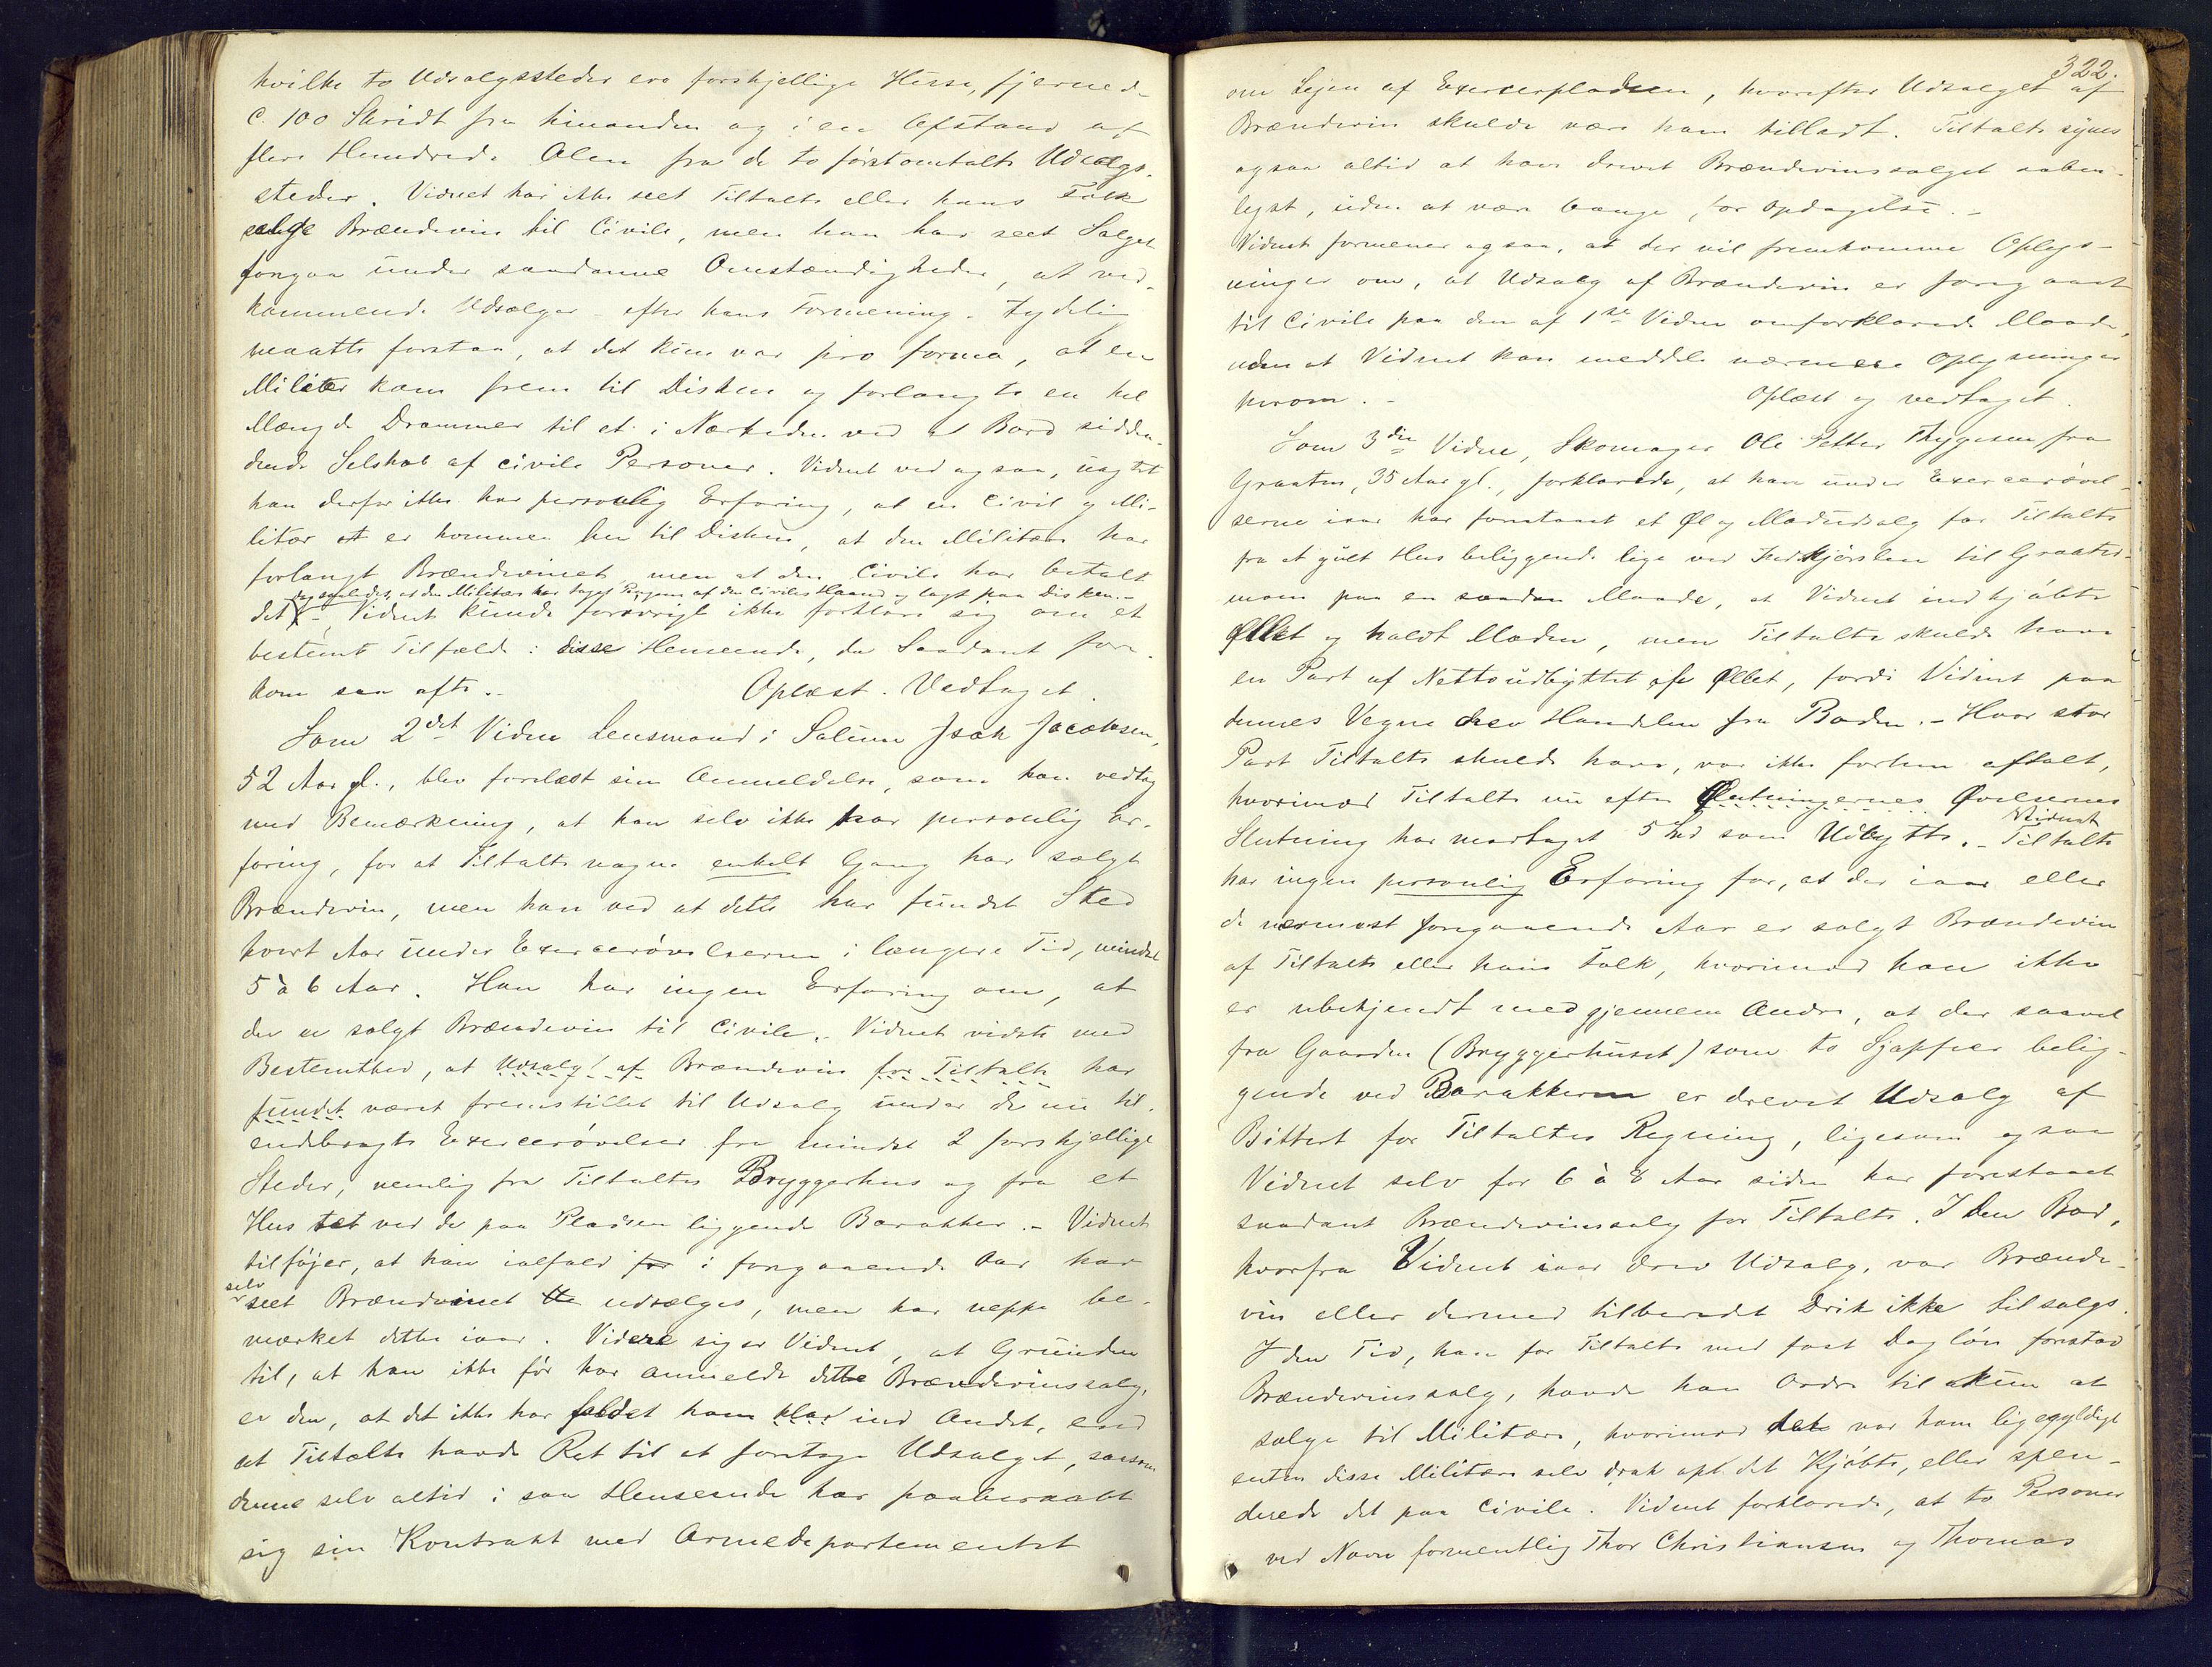 hvilke to Udsalgssteder ere forskjellige Huse, fjernede
c. 100 Skridt fra hinanden og i en Afstand af
flere Hundrede Alen fra de to førstomtalte Udsalgs-
steder. Vidnet har ikke seet Tiltalte eller hans Folk
sælge Brændevin til Civile, men han har seet Salget
foregaa under saadanne Omstændigheder, at ved-
kommende Udsælger - efter hans Formening - tydelig
maatte forstaa, at det kun var pro forma, at en
Militær kom frem til Disken og forlangte en hel
Mængde Drammer til et i Nærheden ved et Bord sidden-
dende Selskab af civile Personer. Vidnet ved ogsaa, uagtet
han derfor ikke har personlig Erfaring, at en Civil og Mi-
litær er kommen hen til Disken, at den Militære har
forlangt Brændevinet, men at den Civile har betalt
og saaledes, at den Militære har taget Pengene af den Civiles Haand og lagt paa Disken.-
det - Vidnet kunde forøvrigt ikke forklare sig om et
bestemt Tilfælde i disse Henseende, da Saadant fore-
kom saa ofte.- Oplæst. Vedtaget.
Som 2det Vidne Lensmand i Solum Isak Jacobsen,
52 Aar gl., blev forelæst sin Anmeldelse, som han vedtog
med Bemærkning, at han selv ikke har personlig Er-
faring, for at Tiltalte nogen enkelt Gang har sælgt
Brændevin, men han ved at dette har fundet Sted
hvert Aar under Exercerøvelserne i længere Tid, mindst
5 à 6 Aar. Han har ingen Erfaring om, at
der er solgt Brændevin til Civile.- Vidnet vidste med
Bestemthed, at Udsalg af Brændevin for Tiltalte har
fundet været fremstillet til Udsalg under de nu til-
endebragte Exercerøvelser fra mindst 2 forskjellige
Steder, nemlig fra Tiltaltes Bryggerhus og fra et
Hus tæt ved de paa Pladsen liggende Barakker.- Vidnet
tilføjer, at han ialfald for i foregaaende Aar har
selv
seet Brændevinet udsælges, men har neppe be-
mærket dette iaar. Videre siger Vidnet, at Grunden
til, at han ikke før har anmeldt dette Brændevinssalg,
er den, at det ikke har faldet ham klar ind Andet, end
at Tiltalte havde Ret til at foretage Udsalget, saasom
denne selv altid i saa Henseende har paaberaabt
sig sin Kontrakt med Armedepartementet
322.
om Lejen af Exercerpladsen, hvorefter Udsalget af
Brændevin skulde være ham tilladt. Tiltalte synes
ogsaa altid at have drevet Brændevinssalget aaben-
lyst, uden at være bange for Opdagelse.-
Vidnet formener ogsaa, at der vil fremkomme Oplys-
ninger om, at Udsalg af Brændevin er foregaaet
til Civile paa den af 1ste Vidne omforklarede Maade,
uden at Vidnet kan meddele nærmere Oplysninger
herom.- Oplæst og vedtaget.
Som 3die Vidne, Skomager Ole Petter Thygesen fra
Graaten, 35 Aar gl., forklarede, at han under Exercerøvel-
serne iaar har forestaaet et Øl og Madudsalg for Tiltalte
fra et gult Hus beliggende lige ved Indkjørslen til Graaten-
moen paa en saadan Maade, at Vidnet indkjøbte
Øllet og holdt Maden, men Tiltalte skulde have
en Part af Nettoudbyttet af Øllet, fordi Vidnet paa
dennes Vegne drev Handelen fra Boden.- Hvor stor
Part Tiltalte skulde have, var ikke forhen aftalt,
hvorimod Tiltalte nu efter Slutningernes Øvelsernes
Slutning har modtaget 5 Spd som Udbytte.- Tiltalte
Vidnet
har ingen personlig Erfaring for, at der iaar eller
de nærmest foregaaende Aar er solgt Brændevin
af Tiltalte eller hans Folk, hvorimod han ikke
er ubekjendt med gjennem Andre, at der saavel
fra Gaarden (Bryggerhuset) som to Sjapper belig-
gende ved Barakkerne er drevet Udsalg af
Bittert for Tiltaltes Regning, ligesom ogsaa
Vidnet selv for 6 à 8 Aar siden har forestaaet
saadant Brændevinssalg for Tiltalte. I den Bod,
hvorfra Vidnet iaar drev Udsalg, var Brænde-
vin eller dermed tilberedt Drik ikke tilsalgs.
I den Tid, han for Tiltalte med fast Dagløn forestod
Brændevinssalg, havde han Ordre til at kun at
sælge til Militære, hvorimod det var ham ligegyldigt
enten disse Militære selv drak op det Kjøbte, eller spen-
derede det paa Civile. Vidnet forklarede, at to Personer
ved Navn formentlig Thor Christiansen og Thomas